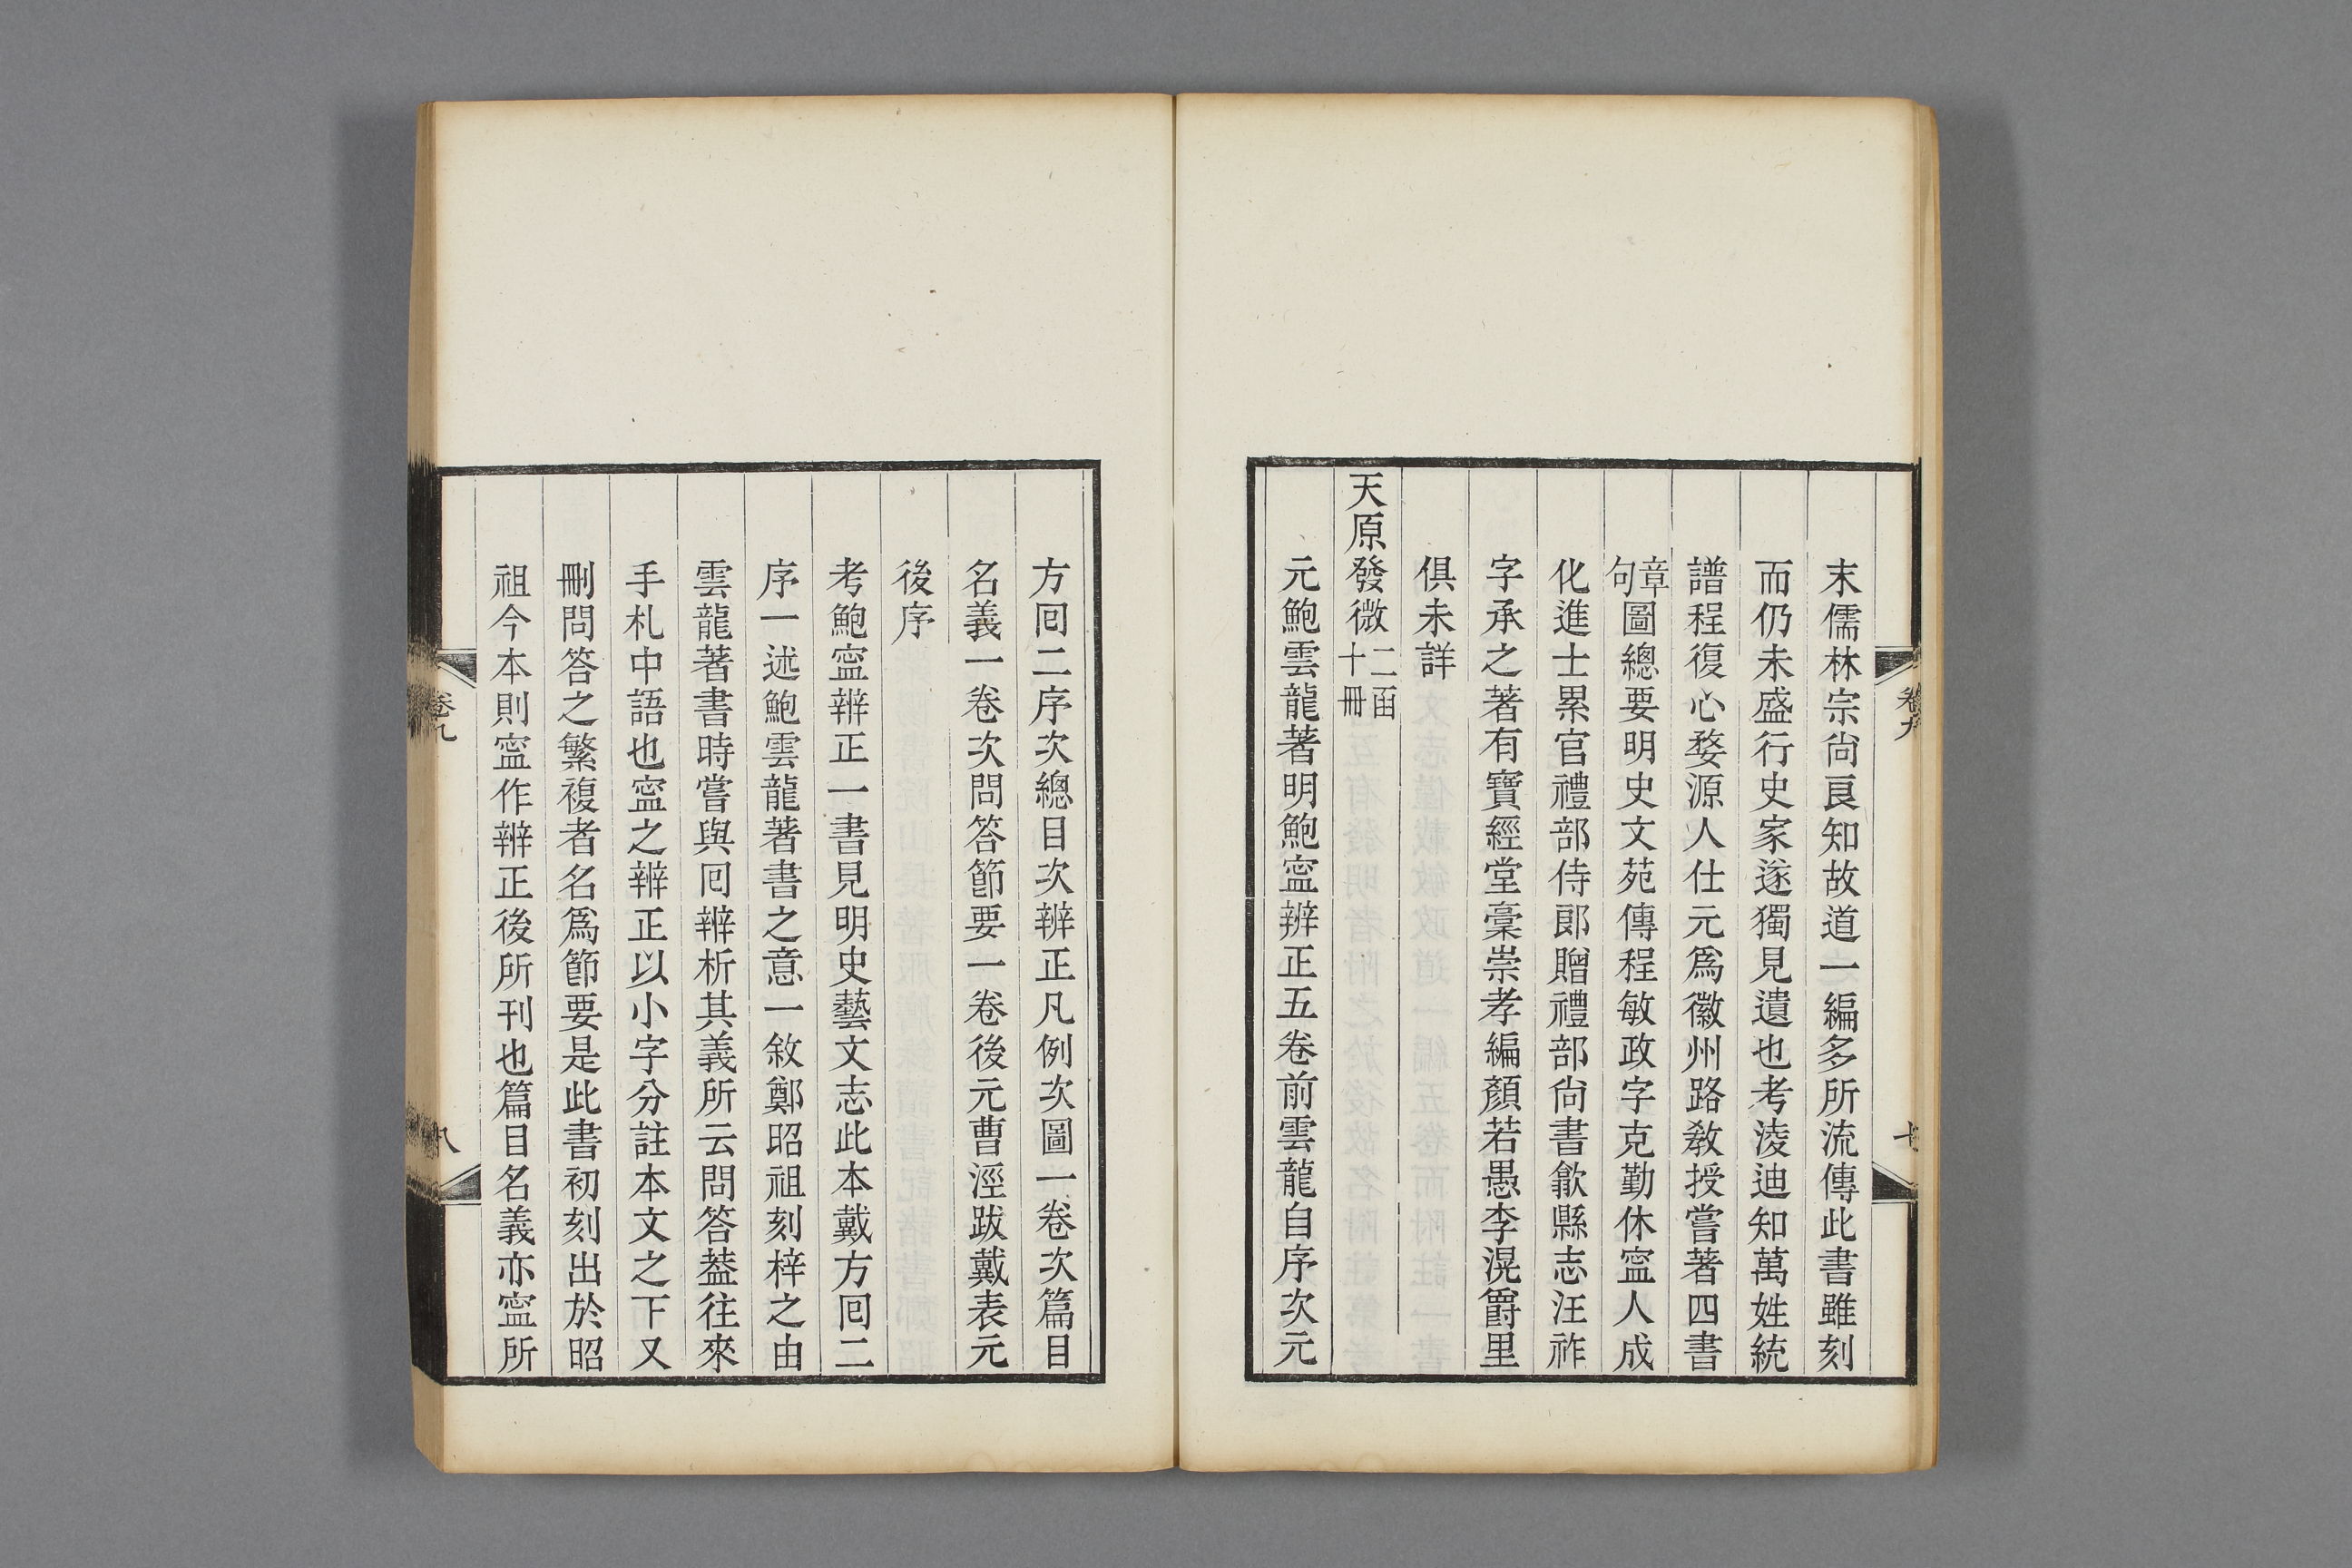 末儒林宗尙良知故道一編多所流傳此書雖刻
而仍未盛行史家遂獨見遺也考淩迪知萬姓統
譜程復心婺源人仕元爲徽州路敎授嘗著四書
章句圖總要明史文苑傳程敏政字克勤休寍人成
化進士累官禮部侍郞贈禮部尙書歙縣志汪祚
字承之著有寶經堂稾崇孝編顏若愚李滉爵里
俱未詳
天原發微二函十冊
元鮑雲龍著明鮑寍辨正五卷前雲龍自序次元
卷九
七
方回二序次總目次辨正凡例次圖一卷次篇目
名義一卷次問答節要一卷後元曹涇跋戴表元
後序
考鮑寍辨正一書見明史藝文志此本戴方回二
序一述鮑雲龍著書之意一敘鄭昭祖刻梓之由
雲龍著書時嘗與回辨析其義所云問答葢往來
手札中語也寍之辨正以小字分註本文之下又
刪問答之繁複者名爲節要是此書初刻出於昭
祖今本則寍作辨正後所刊也篇目名義亦寍所
卷九
八